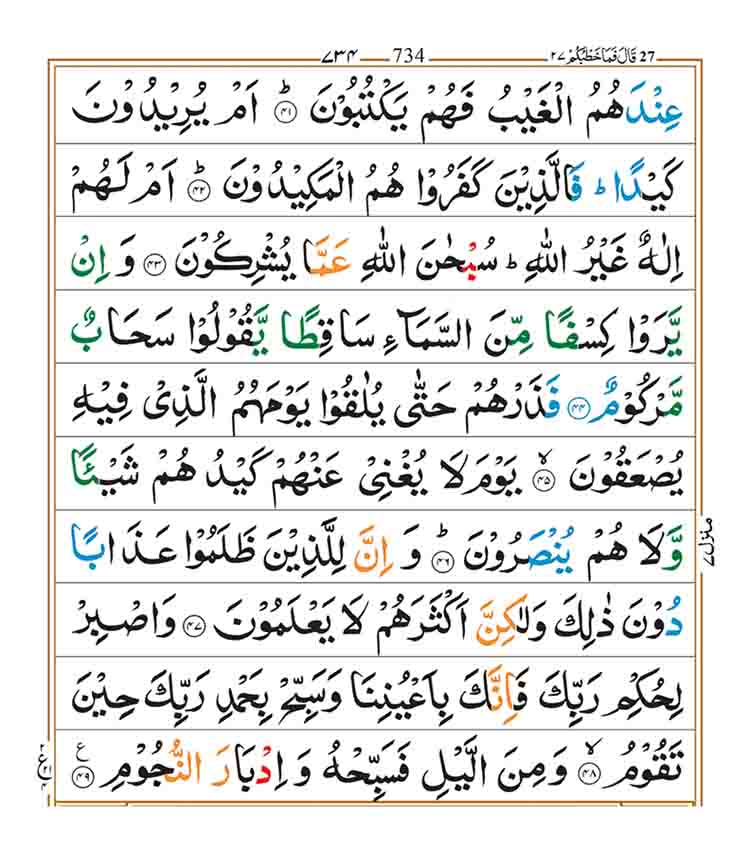 27 قَالَ فَمَا خَطْبُكُمْ ٢٧ 734 ۷۳۴
عِنْدَهُمُ الْغَيْبُ فَهُمْ يَكْتُبُوْنَ ؕ ﴿۴۱﴾ اَمْ يُرِيْدُوْنَ
كَيْدًا ؕ فَالَّذِيْنَ كَفَرُوْا هُمُ الْمَكِيْدُوْنَ ؕ ﴿۴۲﴾ اَمْ لَهُمْ
اِلٰهٌ غَيْرُ اللّٰهِ ؕ سُبْحٰنَ اللّٰهِ عَمَّا يُشْرِكُوْنَ ﴿۴۳﴾ وَ اِنْ
يَّرَوْا كِسْفًا مِّنَ السَّمَآءِ سَاقِطًا يَّقُوْلُوْا سَحَابٌ
مَّرْكُوْمٌ ﴿۴۴﴾ فَذَرْهُمْ حَتّٰى يُلٰقُوْا يَوْمَهُمُ الَّذِيْ فِيْهِ
يُصْعَقُوْنَ ۙ ﴿۴۵﴾ يَوْمَ لَا يُغْنِيْ عَنْهُمْ كَيْدُهُمْ شَيْـًٔا
وَّلَا هُمْ يُنْصَرُوْنَ ؕ ﴿۴۶﴾ وَ اِنَّ لِلَّذِيْنَ ظَلَمُوْا عَذَابًا
دُوْنَ ذٰلِكَ وَلٰكِنَّ اَكْثَرَهُمْ لَا يَعْلَمُوْنَ ﴿۴۷﴾ وَاصْبِرْ
لِحُكْمِ رَبِّكَ فَاِنَّكَ بِاَعْيُنِنَا وَسَبِّحْ بِحَمْدِ رَبِّكَ حِيْنَ
تَقُوْمُ ۙ ﴿۴۸﴾ وَمِنَ الَّيْلِ فَسَبِّحْهُ وَ اِدْبَارَ النُّجُوْمِ ﴿۴۹﴾ ع
منزل ۷